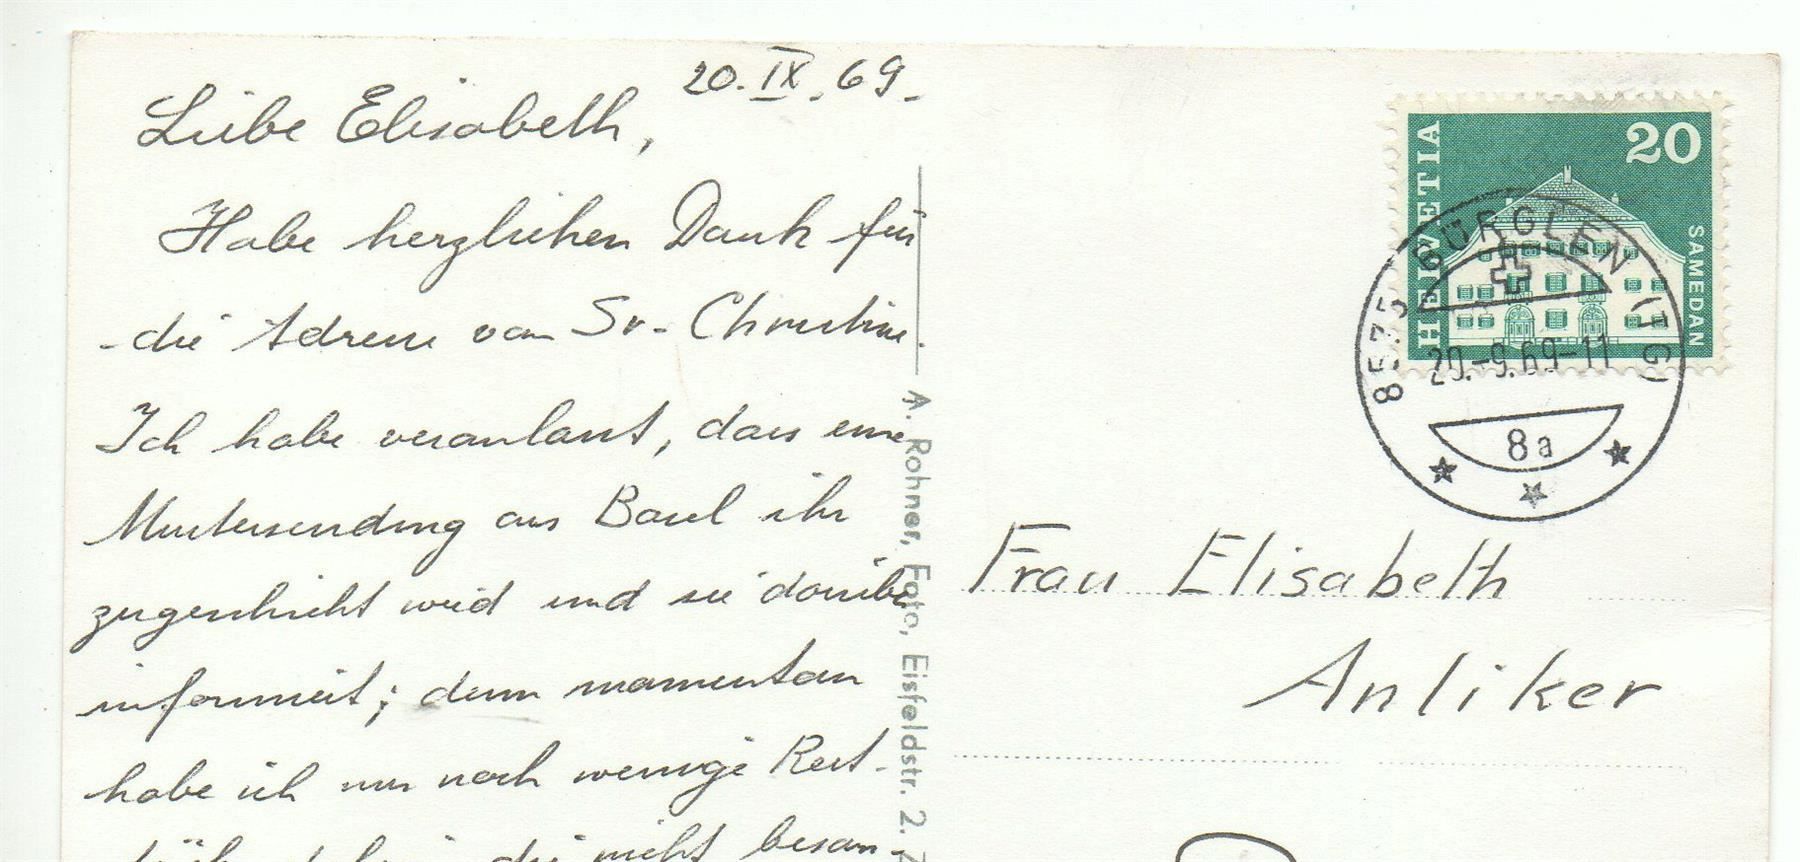 20. IX. 69.
Liebe Elisabeth,
Habe herzlichen Dank für
die Adresse von Sr. Christine.
Ich habe veranlasst, dass eine
Mustersendung aus Basel ihr
zugeschickt wird und sie darüber
informiert; denn momentan
habe ich nur noch wenige Rest-
die nicht beson-
A. Rohner, Foto, Eisfeldstr. 2.
HELVETIA
20
SAMEDAN
8575 BÜRGLEN (TG)
20.-9.69-11
8a
Frau Elisabeth
Anliker